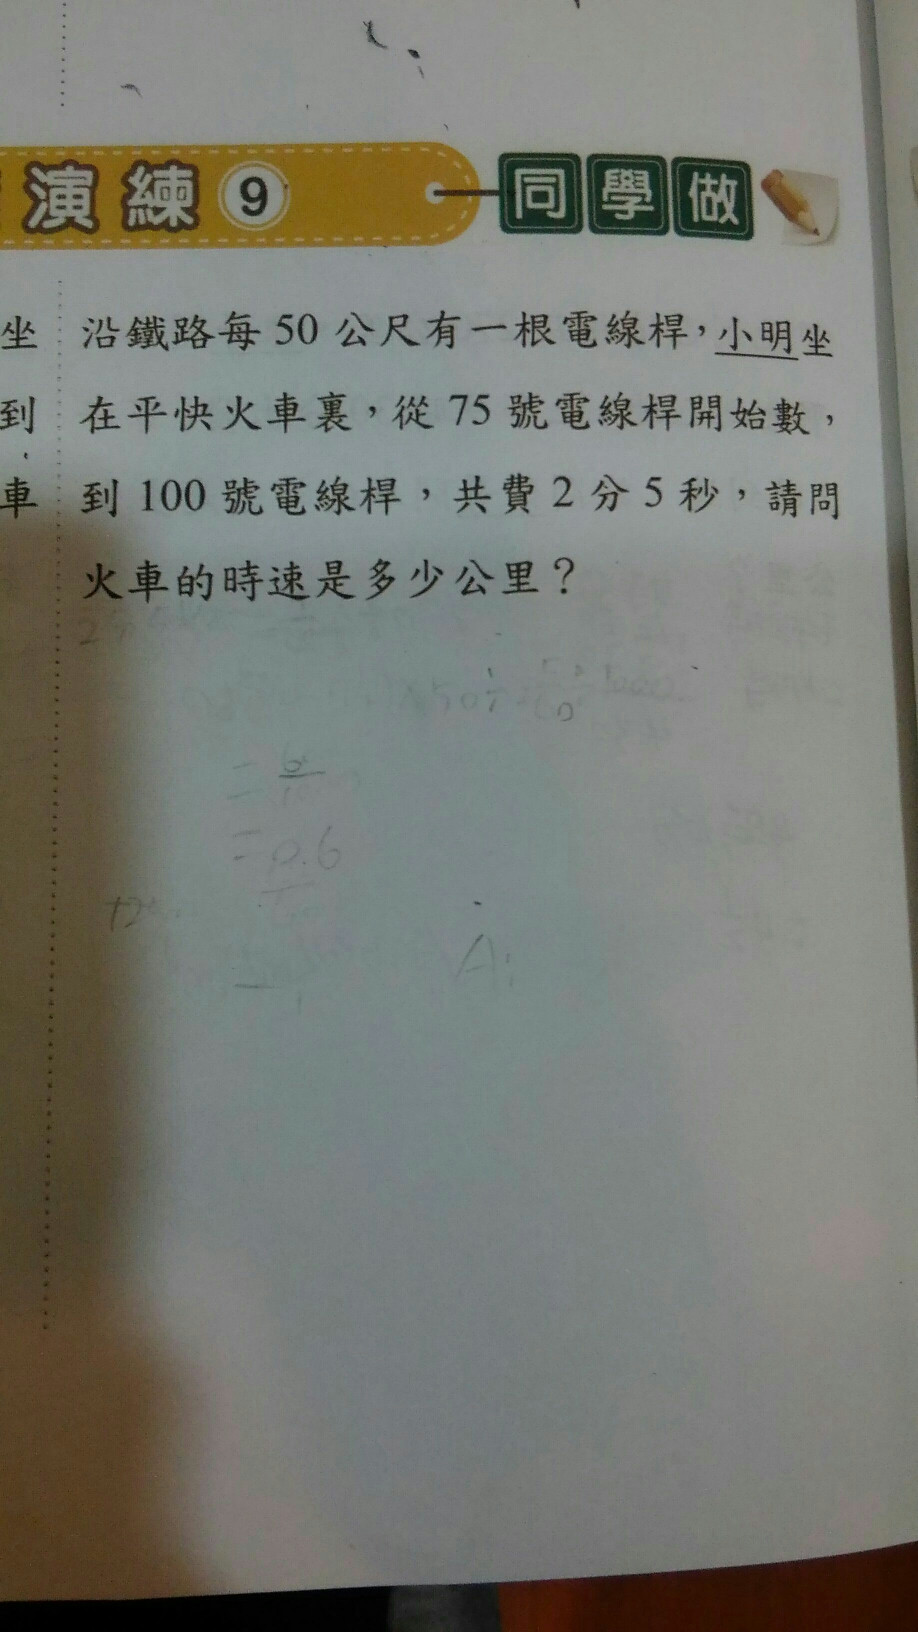 演練9
同學做
坐
到
車
沿鐵路每50公尺有一根電線桿，小明坐
在平快火車裏，從75號電線桿開始數，
到100號電線桿，共費2分5秒，請問
火車的時速是多少公里？
=0.6
A: